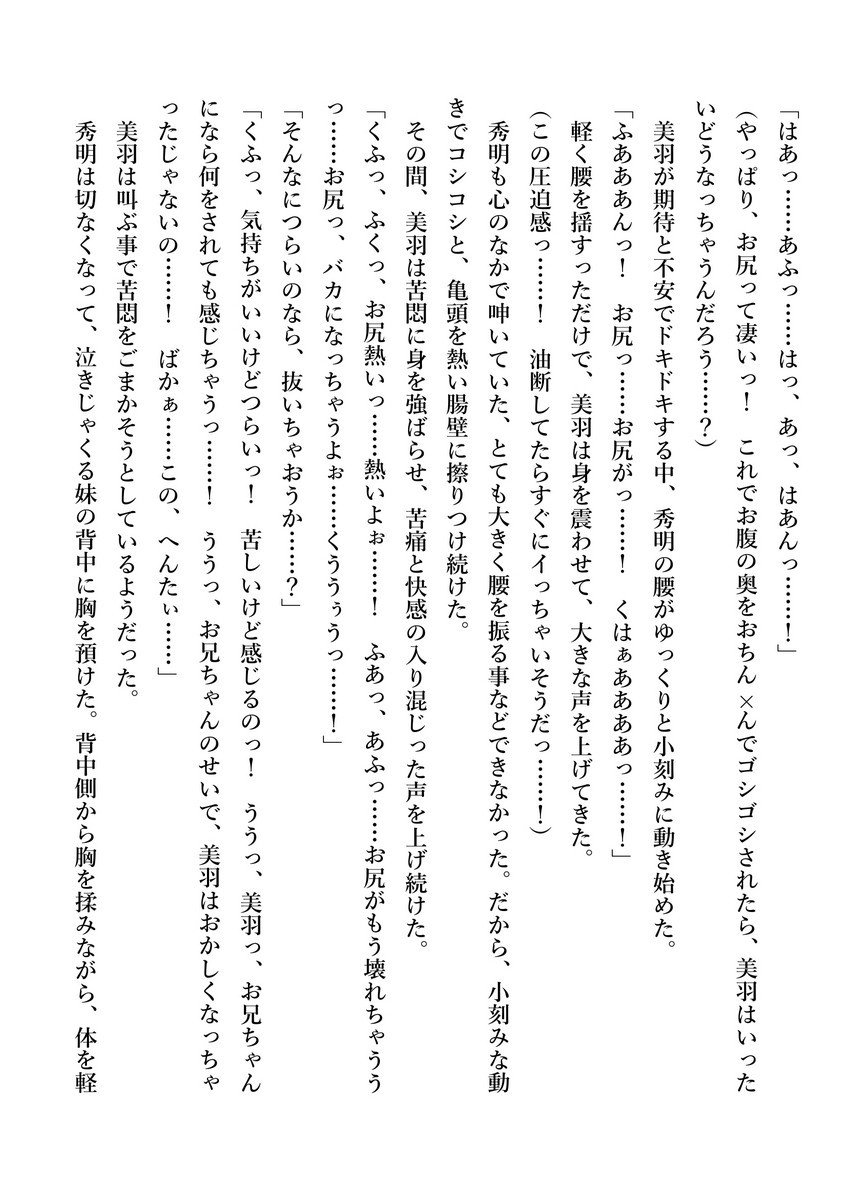 「はあっ……あふっ……はっ、あっ、はあんっ……！」
(やっぱり、お尻って凄いっ！　これでお腹の奥をおちん×んでゴシゴシされたら、美羽はいった
いどうなっちゃうんだろう……？)
　美羽が期待と不安でドキドキする中、秀明の腰がゆっくりと小刻みに動き始めた。
「ふあああんっ！　お尻っ……お尻がっ……！　くはぁああああっ……！」
　軽く腰を揺すっただけで、美羽は身を震わせて、大きな声を上げてきた。
(この圧迫感っ……！　油断してたらすぐにイっちゃいそうだっ……！)
　秀明も心のなかで呻いていた、とても大きく腰を振る事などできなかった。だから、小刻みな動
きでコシコシと、亀頭を熱い腸壁に擦りつけ続けた。
　その間、美羽は苦悶に身を強ばらせ、苦痛と快感の入り混じった声を上げ続けた。
「くふっ、ふくっ、お尻熱いっ……熱いよぉ……！　ふあっ、あふっ……お尻がもう壊れちゃうう
っ……お尻っ、バカになっちゃうよぉ……くううぅうっ……！」
「そんなにつらいのなら、抜いちゃおうか……？」
「くふっ、気持ちがいいけどつらいっ！　苦しいけど感じるのっ！　ううっ、美羽っ、お兄ちゃん
になら何をされても感じちゃうっ……！　ううっ、お兄ちゃんのせいで、美羽はおかしくなっちゃ
ったじゃないの……！　ばかぁ……この、へんたぃ……」
　美羽は叫ぶ事で苦悶をごまかそうとしているようだった。
　秀明は切なくなって、泣きじゃくる妹の背中に胸を預けた。背中側から胸を揉みながら、体を軽